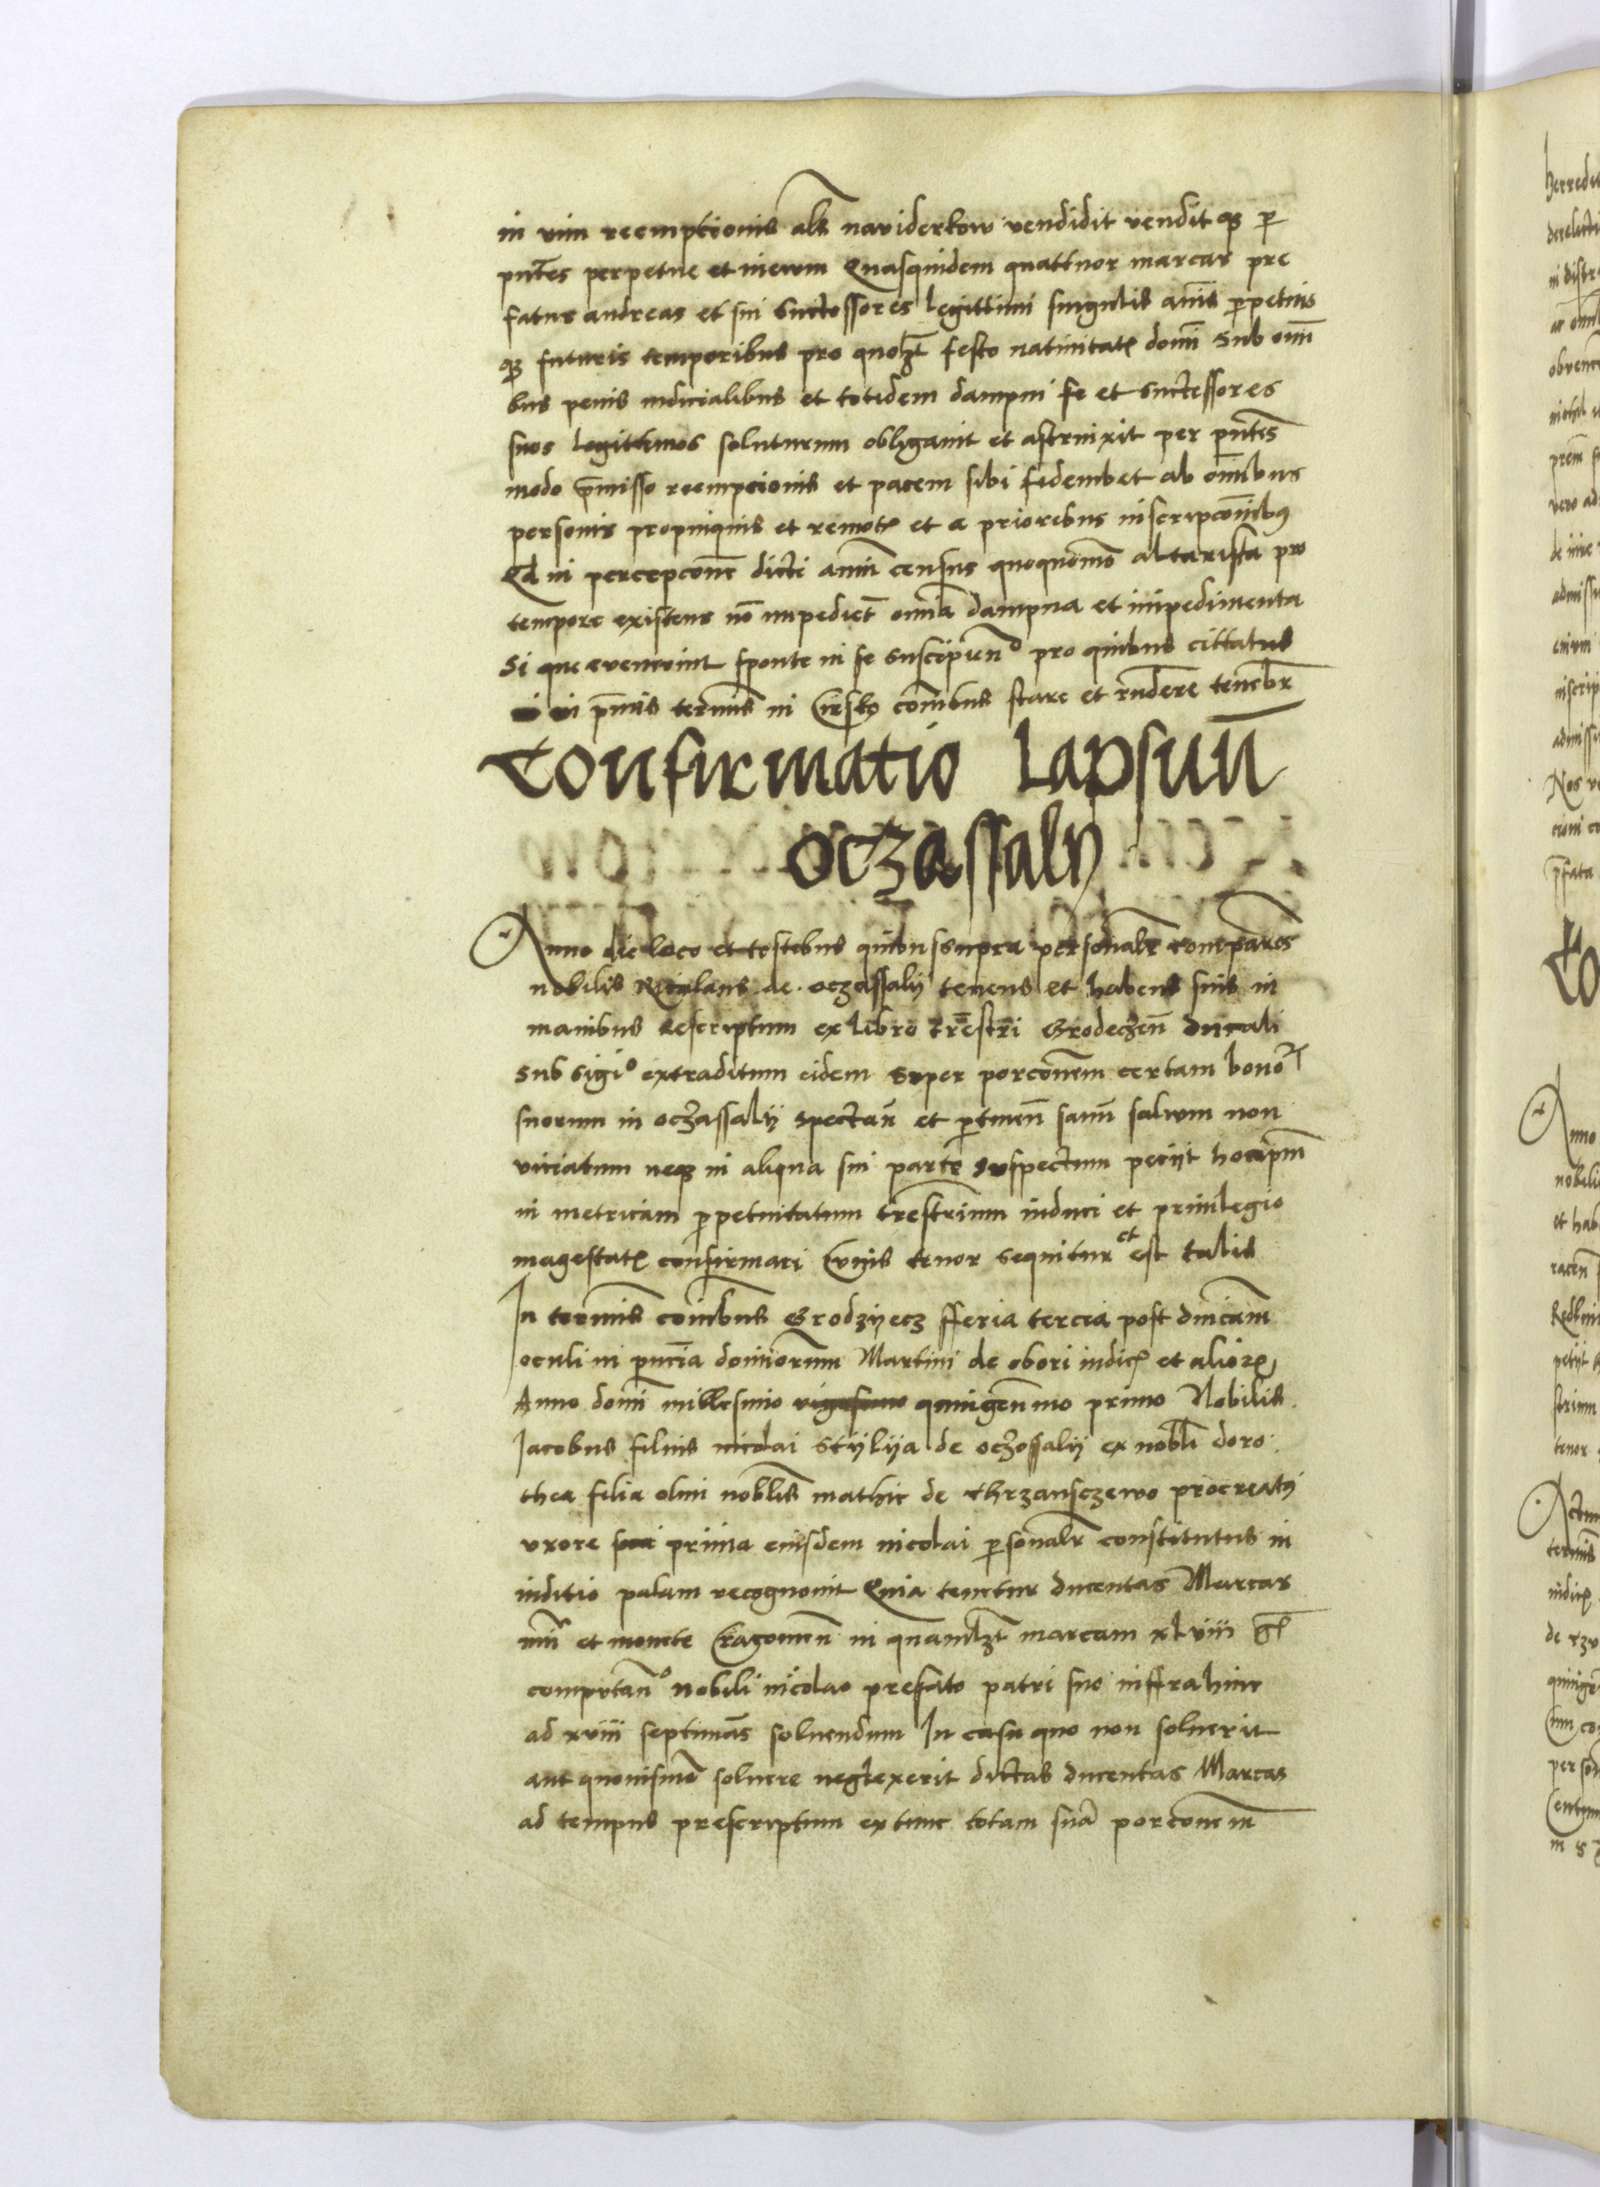 in vim reemptionis als naviderkow vendidit vendit qz per
pntes perpetue et in evum Quasquidem quattuor marcas pre
fatus andreas et sui Successores legittimi singulis annis perpetuis
qz futuris temporibus pro quolzt festo nativitatis domi Sub omni
bus penis iudicialibus et totidem dampni se et successores
suos legittimos soluturum obligavit et astrinxit per pntes
modo pmisso reempcionis et pacem sibi fidembet ab omibus
personis propinquis et remotis et a prioribus inscripconibus
Qd in percepcone dicti annui census quoquomo altarista pro
tempore existens no impediet omia dampna et inpedimenta
Si que evenerint sponte in se suscipiendo pro quibus cittatus
in pmis termis in Cirsko comibus stare et rndere tenebr
Confirmatio Lapsum
oczassaly
Anno die loco et testibus quibus supra personalr comparens
nobilis Nicolaus de oczassaly tenens et habens suis in
manibus Rescriptum ex libro trestri Grodeczen ducali
Sub sigio extraditum eidem super porconem certam bonor
suorum in oczassaly spectan et ptinen sanum salvum non
viciatum neqz in aliqua sui parte suspectum peciit hocipm
in metricam perpetuitatum trestrium induci et privilegio
magestatis confirmari Cuius tenor sequitur et est talis
In termis comibus Grodzyecz fferia tercia post dnicam
oculi in pncia dominorum Martini de obori iudicis et aliorz
Anno domi millesimo quingenmo primo Nobilis
Jacobus filius nicolai Styliya de oczossaly ex nobli doro
thea filia olim noblis mathie de Chrzansczewo procreaty
uxore prima eiusdem nicolai personalr constitutus in
iuditio palam recognovit Quia tenetur ducentas Marcas
mun et monete Cracovien in quamlzt marcam xlviii gs
computando nobili nicolao prefato patri suo inffra hinc
ad xviii septimas solvendum In casu quo non solverit
aut quovismo solvere neglexerit dictas ducentas Marcas
ad tempus prescriptum extunc totam sua porconem